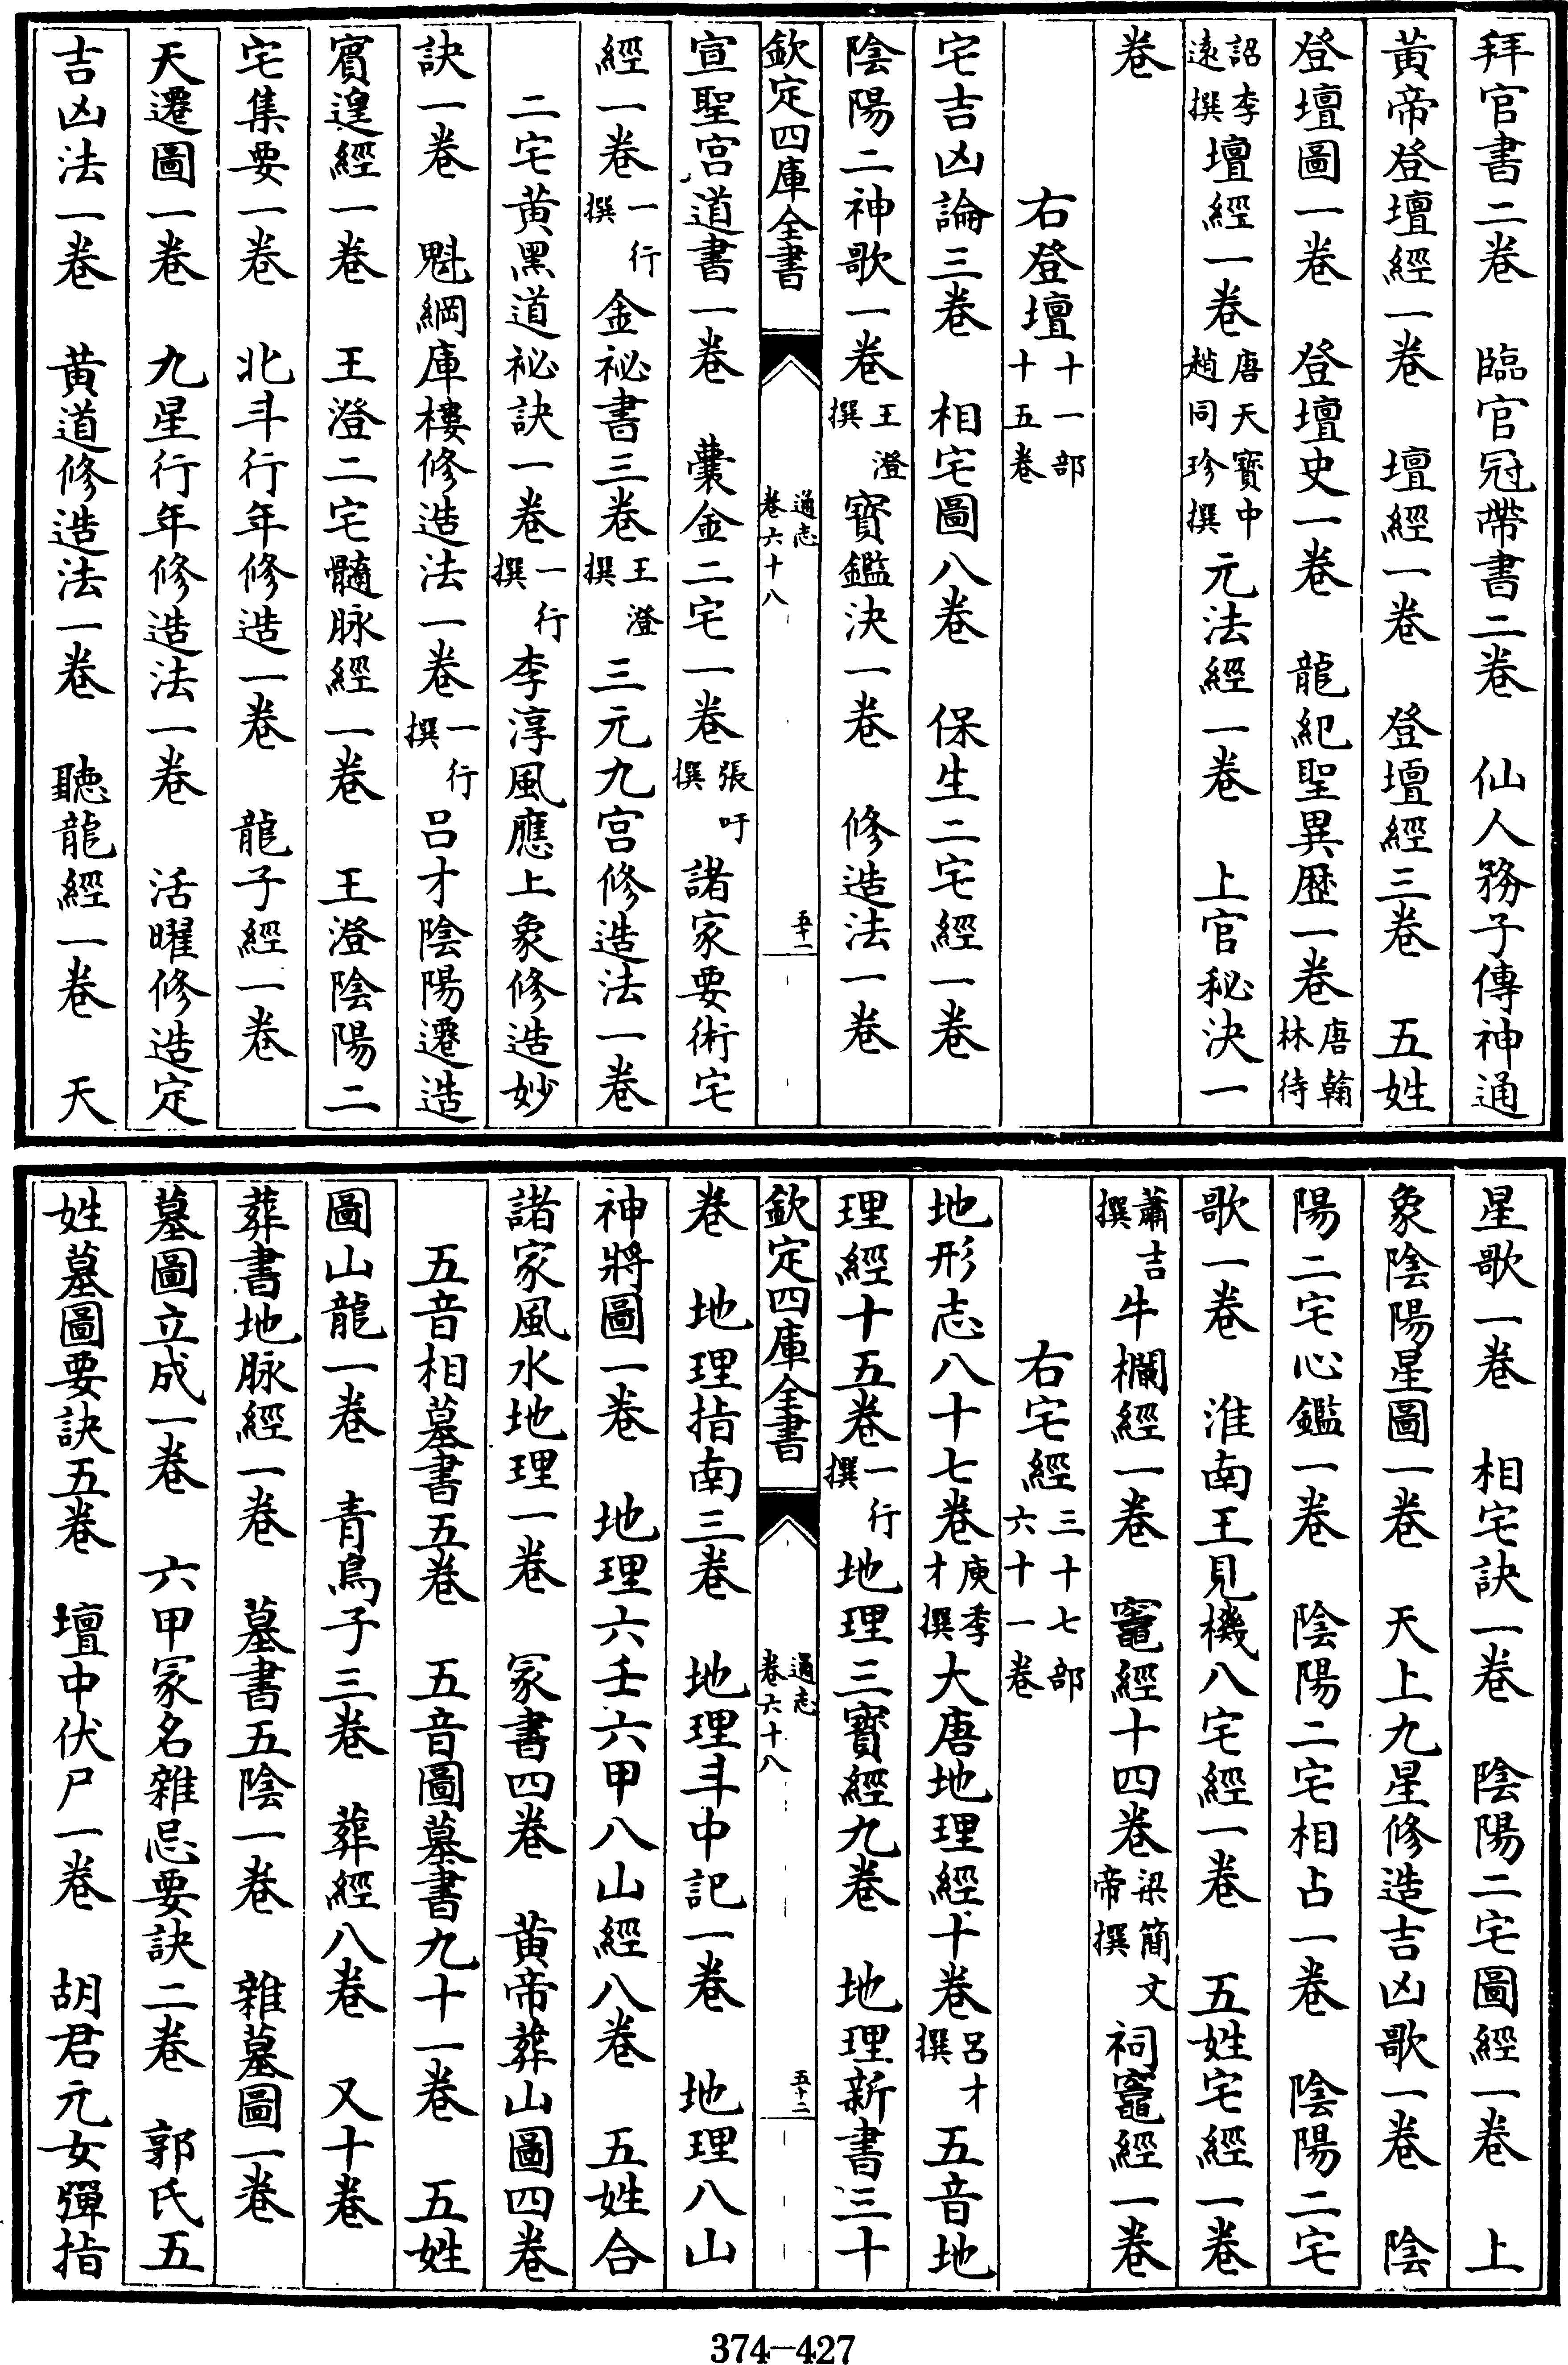 拜官書二卷　臨官冠帶書二卷　仙人務子傳神通
黃帝登壇經一卷　壇經一卷　登壇經三卷　五姓
登壇圖一卷　登壇史一卷　龍紀聖異歴一卷唐翰林待
詔李遠撰壇經一卷唐天寳中趙同珍撰元法經一卷　上官秘決一
卷
右登壇十一部十五卷
宅吉凶論三卷　相宅圖八卷　保生二宅經一卷
陰陽二神歌一卷王澄撰寳鑑決一卷　修造法一卷
欽定四庫全書　通志卷六十八　五十一
宣聖宫道書一卷　囊金二宅一卷張吁撰諸家要術宅
經一卷一行撰金祕書三卷王澄撰三元九宫修造法一卷
二宅黄黑道祕訣一卷一行撰李淳風應上象修造妙
訣一卷　魁綱庫樓修造法一卷一行撰吕才陰陽遷造
賔遑經一卷　王澄二宅髓脉經一卷　王澄陰陽二
宅集要一卷　北斗行年修造一卷　龍子經一卷
天遷圖一卷　九星行年修造法一卷　活曜修造定
吉凶法一卷　黄道修造法一卷　聽龍經一卷　天
星歌一卷　相宅訣一卷　陰陽二宅圖經一卷　上
象陰陽星圖一卷　天上九星修造吉凶歌一卷　陰
陽二宅心鑑一卷　陰陽二宅相占一卷　陰陽二宅
歌一卷　淮南王見機八宅經一卷　五姓宅經一卷
蕭吉撰牛欄經一卷　竈經十四卷梁簡文帝撰祠竈經一卷
右宅經三十七部六十一卷
地形志八十七卷庾季才撰大唐地理經十卷吕才撰五音地
理經十五卷一行撰地理三寳經九卷　地理新書三十
欽定四庫全書　通志卷六十八　五十二
卷　地理指南三卷　地理斗中記一卷　地理八山
神將圖一卷　地理六壬六甲八山經八卷　五姓合
諸家風水地理一卷　冢書四卷　黄帝葬山圖四卷
五音相墓書五卷　五音圖墓書九十一卷　五姓
圖山龍一卷　青鳥子三卷　葬經八卷　又十卷
葬書地脉經一卷　墓書五陰一卷　雜墓圖一卷
墓圖立成一卷　六甲冢名雜忌要訣二卷　郭氏五
姓墓圖要訣五卷　壇中伏尸一卷　胡君元女彈指
374—427